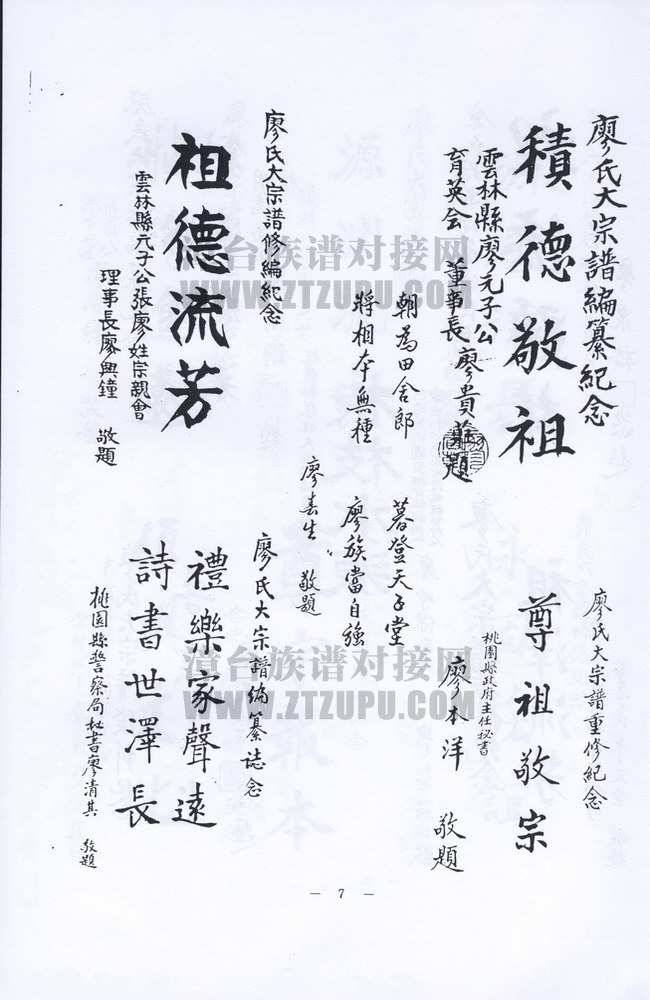 廖氏大宗譜編纂紀念
積德敬祖
雲林縣廖元子公
育英会 董事長 廖貴 題
朝為田舍郎
暮登天子堂
將相本無種
廖族當自強
廖春生 敬題
廖氏大宗譜修編紀念
祖德流芳
雲林縣元子公張廖姓宗親會
理事長廖興鐘 敬題
廖氏大宗譜重修紀念
尊祖敬宗
桃園縣政府主任秘書
廖本洋 敬題
廖氏大宗譜编纂誌念
禮樂家聲遠
詩書世澤長
桃園縣警察局秘書廖清其 敬題
漳台族谱对接网
WWW.ZTZUPU.COM
漳台族谱对接网
WWW.ZTZUPU.COM
— 7 —